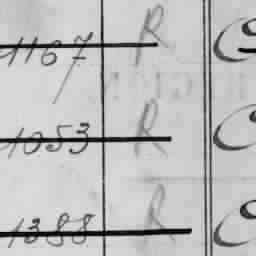 1167 R
1053 R
1388 R